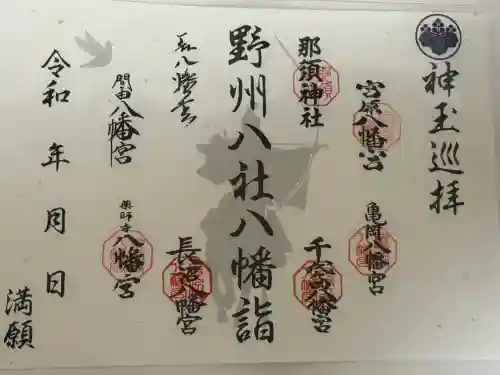 神玉巡拝
宮原八幡宮
亀岡八幡宮
那須神社
千渡八幡宮
野州八社八幡詣
八幡宮
長沼八幡宮
間々田八幡宮
薬師寺
八幡宮
令和 年 月 日
満願